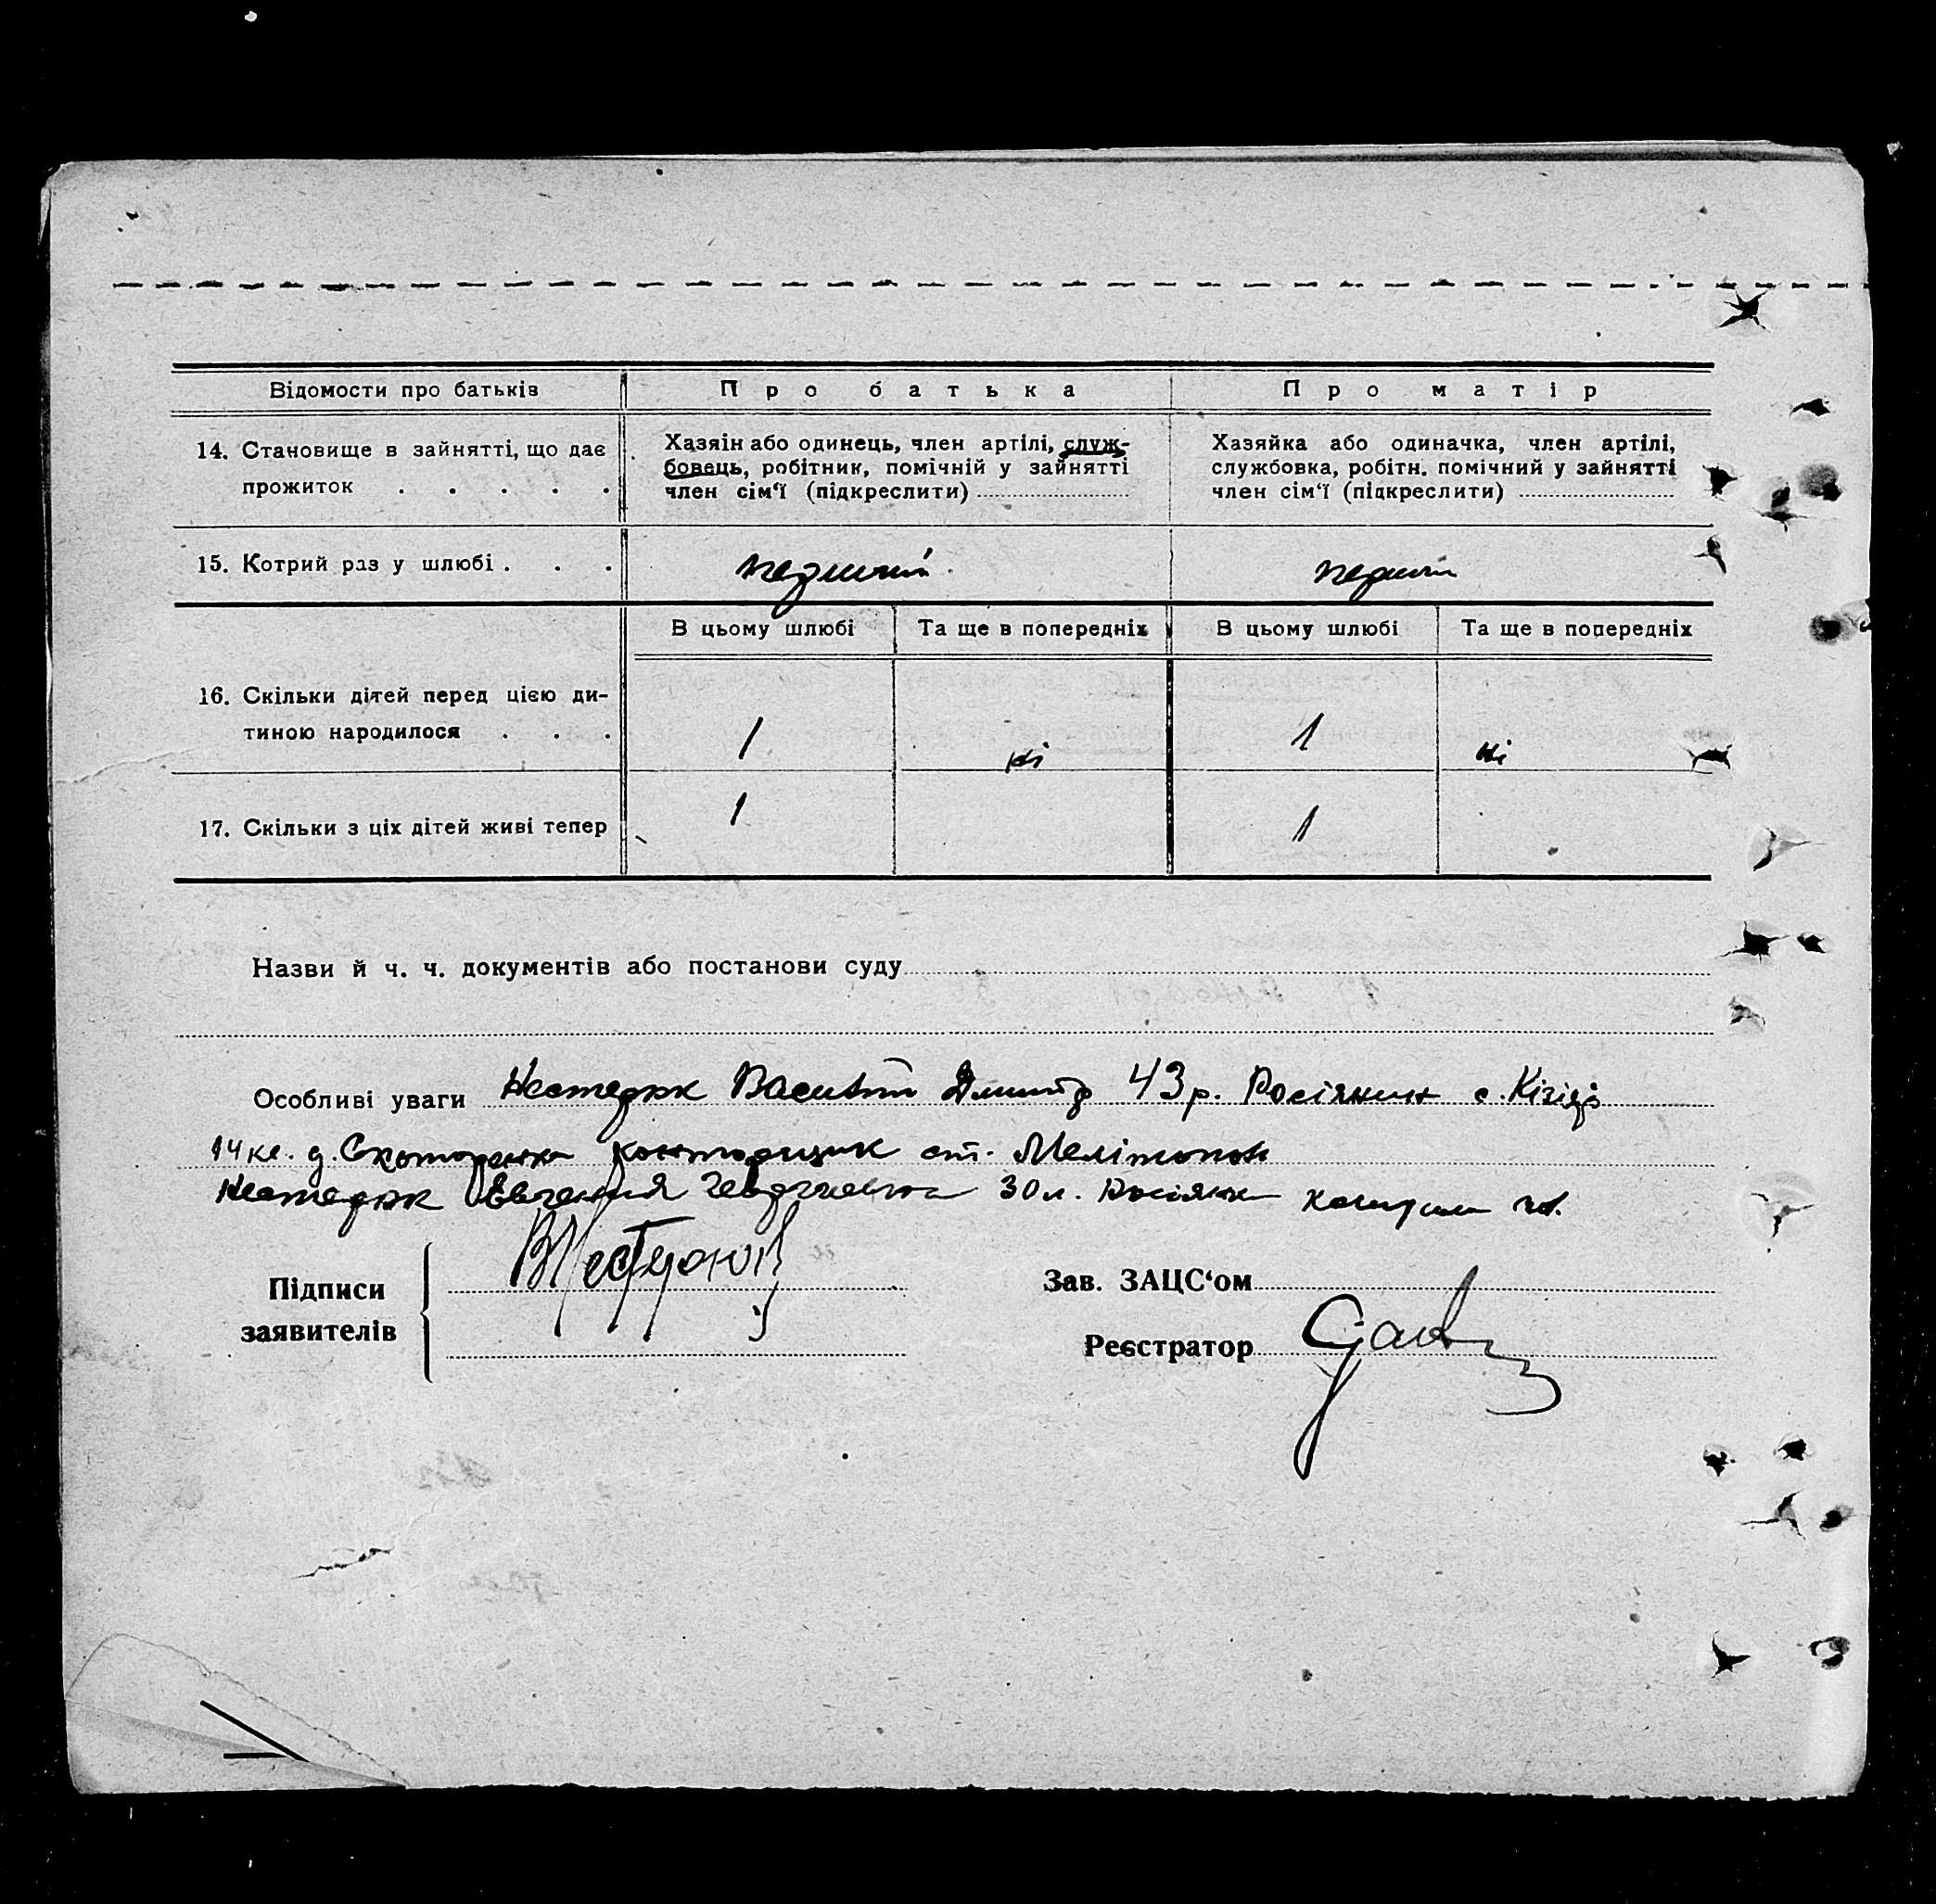 Відомости про батьків
Про батька
Про матір
14. Становище в зайнятті, що дає
прожиток . . . . .
Хазяін або одинець, член артілі, служ-
бовець, робітник, помічній у зайнятті
член сім'ї (підкреслити)
Хазяйка або одиначка, член артілі,
службовка, робітн. помічний у зайнятті
член сім'ї (підкреслити)
15. Котрий раз у шлюбі . . .
перший
перший
В цьому шлюбі
Та ще в попередніх
В цьому шлюбі
Та ще в попередніх
16. Скільки дітей перед цією ди-
тиною народилося . . .
1
ні
1
ні
17. Скільки з ціх дітей живі тепер
1
1
Назви й ч. ч. документів або постанови суду
Особливі уваги 43 р. Росіянин с.
14 кв. д. конторщик ст. Мелітополь
Евгения 30 л. Росіянка
Підписи
заявителів
Зав. ЗАЦС'ом
Реєстратор